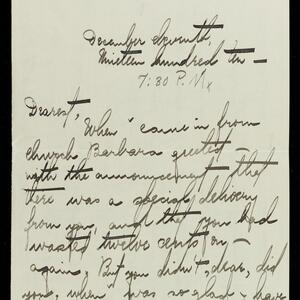 December Seventh,
Nineteen hundred ten —
7:30 P.M.
Dearest,
When I came in from
church, Barbara greeted —
with the announcement that
there was a special delivery
from you, and that you had
wasted twelve cents on —
again. But you didn't, dear, did
you, when I was so glad to have